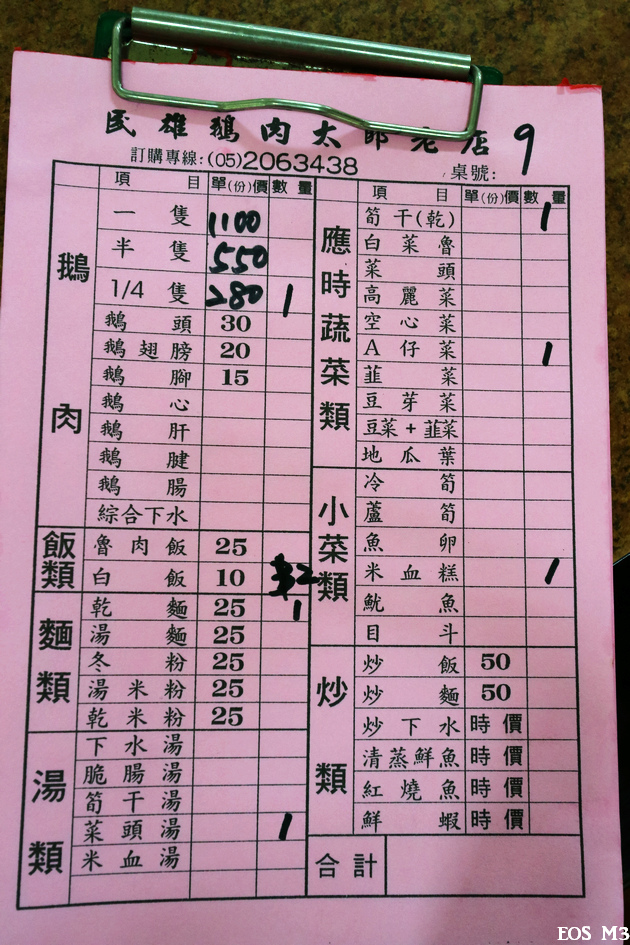 民雄鵝肉太郎老店 9
訂購專線:(05)2063438 桌號:
項 目 單(份)價 數 量
鵝肉
一 隻 1100
半 隻 550
1/4 隻 280 1
鵝 頭 30
鵝翅膀 20
鵝 腳 15
鵝 心
鵝 肝
鵝 腱
鵝 腸
綜合下水
飯類
魯肉飯 25
白 飯 10 2
麵類
乾 麵 25 1
湯 麵 25
冬 粉 25
湯米粉 25
乾米粉 25
湯類
下水湯
脆腸湯
筍干湯
菜頭湯 1
米血湯
項 目 單(份)價 數 量
應時蔬菜類
筍干(乾) 1
白菜魯
菜 頭
高麗菜
空心菜
A仔菜 1
韮 菜
豆芽菜
豆菜+韮菜
地瓜葉
小菜類
冷 筍
蘆 筍
魚 卵
米血糕 1
魷 魚
目 斗
炒類
炒 飯 50
炒 麵 50
炒下水 時價
清蒸鮮魚 時價
紅燒魚 時價
鮮 蝦 時價
合計
EOS M3